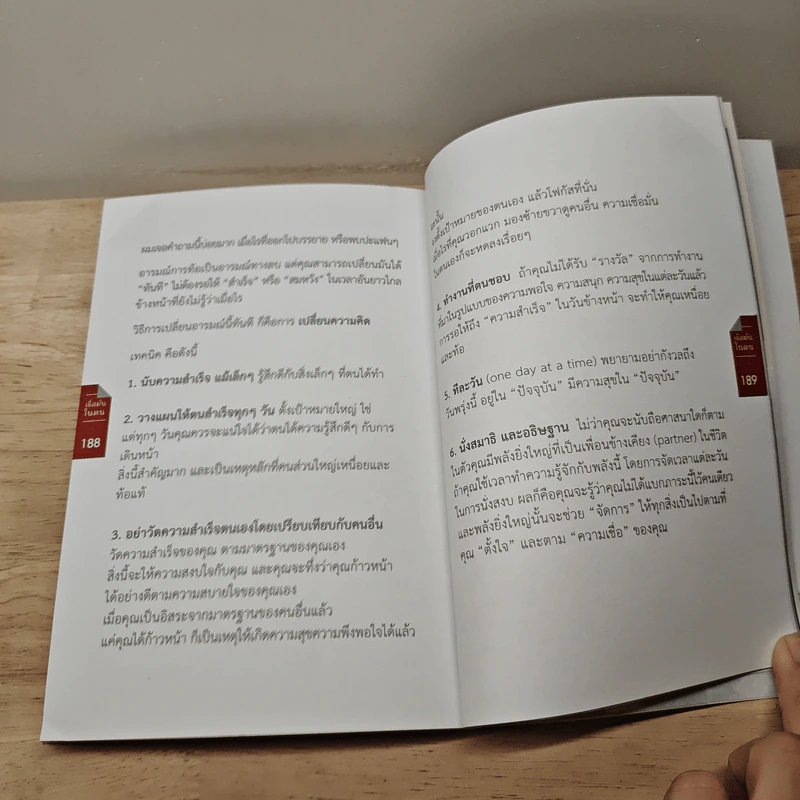 ผมเจอคำถามนี้บ่อยมาก เมื่อไรที่ออกไปบรรยาย หรือพบปะแฟนๆ
อารมณ์การท้อเป็นอารมณ์ทางลบ แต่คุณสามารถเปลี่ยนมันได้
"ทันที" ไม่ต้องรอให้ "สำเร็จ" หรือ "สมหวัง" ในเวลาอันยาวไกล
ข้างหน้าที่ยังไม่รู้ว่าเมื่อไร
วิธีการเปลี่ยนอารมณ์นี้ทันที ก็คือการ เปลี่ยนความคิด
เทคนิค คือดังนี้
1. นับความสำเร็จ แม้เล็กๆ รู้สึกดีกับสิ่งเล็กๆ ที่ตนได้ทำ
2. วางแผนให้ตนสำเร็จทุกๆ วัน ตั้งเป้าหมายใหญ่ ใช่
แต่ทุกๆ วันคุณควรจะแน่ใจได้ว่าตนได้ความรู้สึกดีๆ กับการ
เดินหน้า
สิ่งนี้สำคัญมาก และเป็นเหตุหลักที่คนส่วนใหญ่เหนื่อยและ
ท้อแท้
3. อย่าวัดความสำเร็จตนเองโดยเปรียบเทียบกับคนอื่น
วัดความสำเร็จของคุณ ตามมาตรฐานของคุณเอง
สิ่งนี้จะให้ความสงบใจกับคุณ และคุณจะทึ่งว่าคุณก้าวหน้า
ได้อย่างดีตามความสบายใจของคุณเอง
เมื่อคุณเป็นอิสระจากมาตรฐานของคนอื่นแล้ว
แค่คุณได้ก้าวหน้า ก็เป็นเหตุให้เกิดความสุขความพึงพอใจได้แล้ว
เชื่อมั่น
ในตน
188
ฉะนั้น
จงตั้งเป้าหมายของตนเอง แล้วโฟกัสที่นั่น
เมื่อไรที่คุณวอกแวก มองซ้ายขวาดูคนอื่น ความเชื่อมั่น
ในตนเองก็จะหดลงเรื่อยๆ
4. ทำงานที่ตนชอบ ถ้าคุณไม่ได้รับ "รางวัล" จากการทำงาน
ที่มาในรูปแบบของความพอใจ ความสนุก ความสุขในแต่ละวันแล้ว
การรอให้ถึง "ความสำเร็จ" ในวันข้างหน้า จะทำให้คุณเหนื่อย
และท้อ
5. ทีละวัน (one day at a time) พยายามอย่ากังวลถึง
วันพรุ่งนี้ อยู่ใน "ปัจจุบัน" มีความสุขใน "ปัจจุบัน"
6. นั่งสมาธิ และอธิษฐาน ไม่ว่าคุณจะนับถือศาสนาใดก็ตาม
ในตัวคุณมีพลังยิ่งใหญ่ที่เป็นเพื่อนข้างเคียง (partner) ในชีวิต
ถ้าคุณใช้เวลาทำความรู้จักกับพลังนี้ โดยการจัดเวลาแต่ละวัน
ในการนั่งสงบ ผลก็คือคุณจะรู้ว่าคุณไม่ได้แบกภาระนี้ไว้คนเดียว
และพลังยิ่งใหญ่นั้นจะช่วย "จัดการ" ให้ทุกสิ่งเป็นไปตามที่
คุณ "ตั้งใจ" และตาม "ความเชื่อ" ของคุณ
เชื่อมั่น
ในตน
189